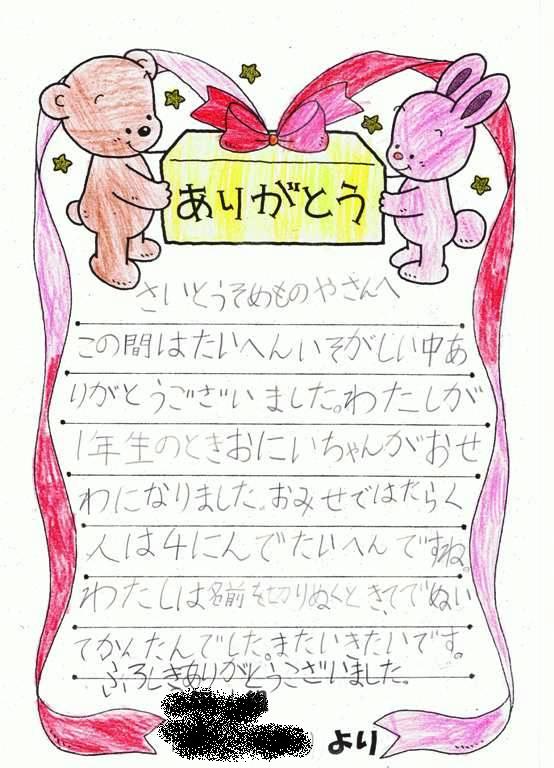 ありがとう
さいとうそめものやさんへ
この間はたいへんいそがしい中あ
りがとうございました。わたしが
1年生のときおにいちゃんがおせ
わになりました。おみせではたらく
人は4にんでたいへんですね。
わたしは名前を切りぬくとき、てでぬい
てかんたんでした。またいきたいです。
ふろしきありがとうございました。
より